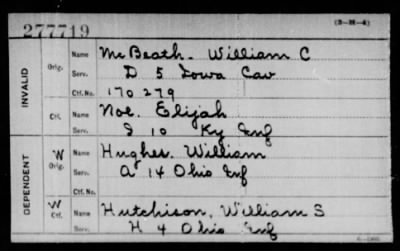 277719
(3-H-4)
INVALID
Orig. Name McBeath. William C
Serv. D 5 Iowa Cav
Ctf. No. 170 279
Ctf. Name Noe. Elijah
Serv. I 10 Ky Inf
DEPENDENT
W Orig. Name Hughes. William
Serv. A 14 Ohio Inf
Ctf. No.
W Ctf. Name Hutchison, William S
Serv. H 4 Ohio Inf